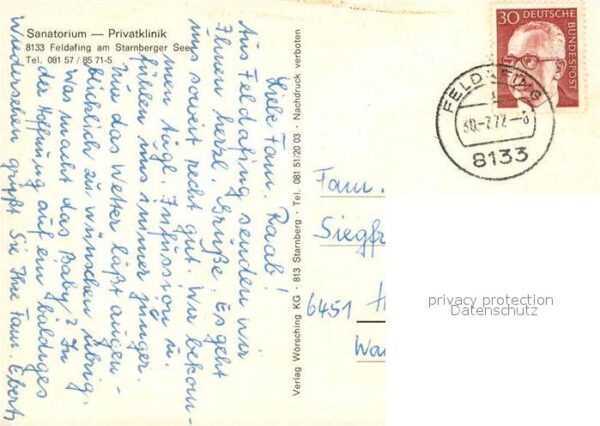 Sanatorium — Privatklinik
8133 Feldafing am Starnberger See
Tel. 081 57 / 85 71-5
Liebe Fam. Raab!
Aus Feldafing senden wir
Ihnen herzl. Grüße. Es geht
uns soweit recht gut. Wir bekom-
men tägl. Infusion u.
fühlen uns immer jünger.
Nur das Wetter läßt augen-
blicklich zu wünschen übrig.
Was macht das Baby? In
der Hoffnung auf ein baldiges
Wiedersehen grüßt Sie Ihre Fam. Ebert
Verlag Worsching KG · 813 Starnberg · Tel. 081 51/20 03 · Nachdruck verboten
30 DEUTSCHE
BUNDESPOST
FELDAFING
30.-7.72.-8
8133
Fam.
Siegfr
6451
Wa
privacy protection
Datenschutz